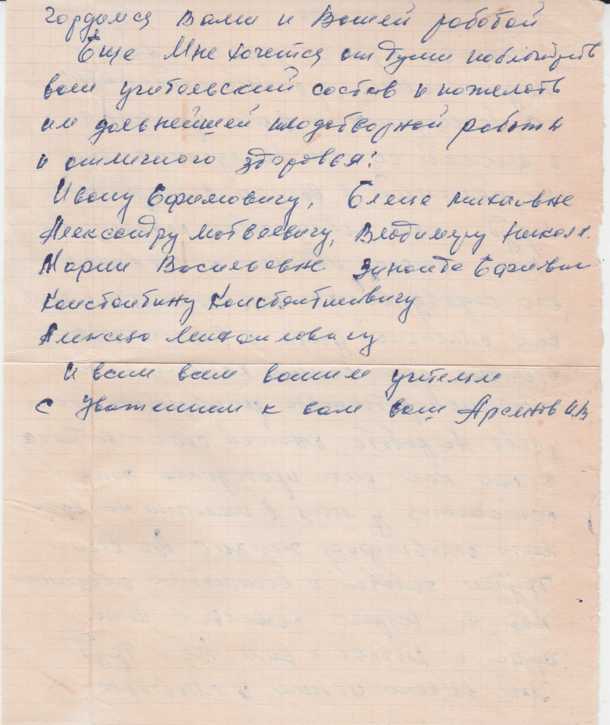 гордимся Вами и Вашей работой
Еще мне хочется от души
ваш учительский состав и пожелать
им дальнейшей плодотворной работы
и отличного здоровья:
Ивану Ефимовичу, Елене
Александру Матвеевичу, Владимиру Никол.
Марии Васильевне Зинаиде
Константину Константиновичу
Алексею Михайловичу
И всем всем вашим
С уважением к вам ваш